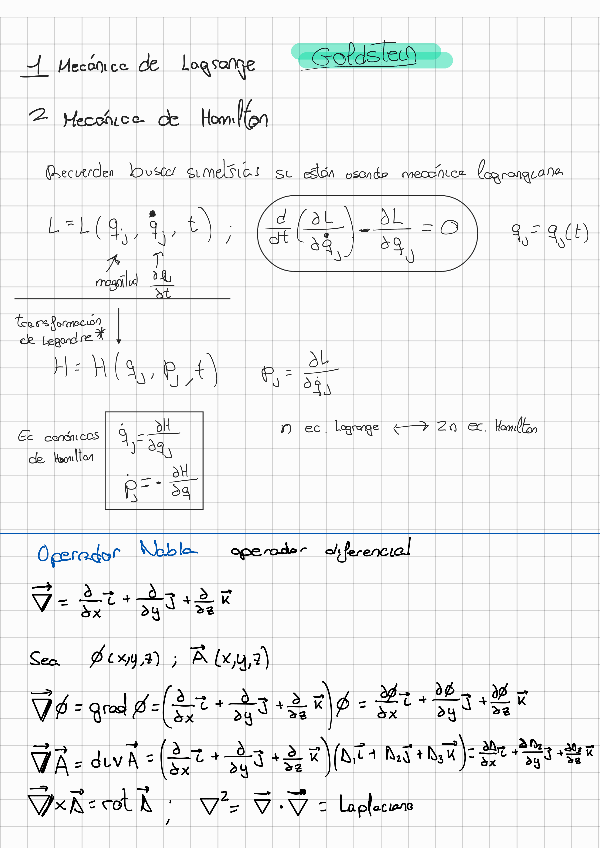 1 Mecánica de Lagrange Goldstein
2 Mecánica de Hamilton
Recuerden buscar simetrías si están usando mecánica lagrangiana
L = L(q_j, q̇_j, t) ; d/dt (∂L/∂q̇_j) - ∂L/∂q_j = 0 q_j = q_j(t)
magnitud ∂q_j/∂t
transformación
de Legendre *
H = H(q_j, p_j, t) p_j = ∂L/∂q̇_j
n ec. Lagrange ⟷ 2n ec. Hamilton
Ec canónicas q̇_j = ∂H/∂q_j
de Hamilton
ṗ_j = - ∂H/∂q
Operador Nabla operador diferencial
∇⃗ = ∂/∂x i⃗ + ∂/∂y j⃗ + ∂/∂z k⃗
Sea ϕ(x,y,z) ; A⃗(x,y,z)
∇⃗ϕ = grad ϕ = (∂/∂x i⃗ + ∂/∂y j⃗ + ∂/∂z k⃗)ϕ = ∂ϕ/∂x i⃗ + ∂ϕ/∂y j⃗ + ∂ϕ/∂z k⃗
∇⃗A⃗ = div A⃗ = (∂/∂x i⃗ + ∂/∂y j⃗ + ∂/∂z k⃗)(A₁i⃗ + A₂j⃗ + A₃k⃗) = ∂A₁/∂x i⃗ + ∂A₂/∂y j⃗ + ∂A₃/∂z k⃗
∇⃗×A⃗ = rot A⃗ ; ∇² = ∇⃗·∇⃗ = Laplaciano